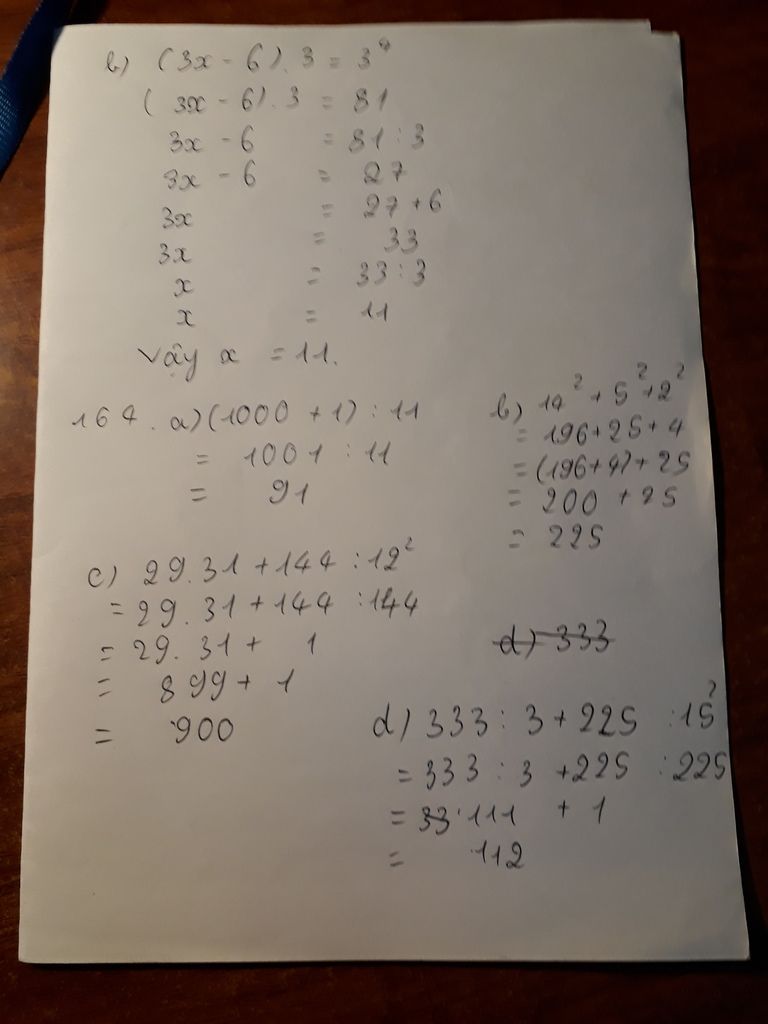 b) (3x - 6). 3 = 3⁴
(3x - 6). 3 = 81
3x - 6 = 81 : 3
3x - 6 = 27
3x = 27 + 6
3x = 33
x = 33 : 3
x = 11
Vậy x = 11.
164. a) (1000 + 1) : 11
= 1001 : 11
= 91
b) 14² + 5² + 2²
= 196 + 25 + 4
= (196 + 4) + 25
= 200 + 25
= 225
c) 29.31 + 144 : 12²
= 29.31 + 144 : 144
= 29.31 + 1
= 899 + 1
= 900
d) 333
d) 333 : 3 + 225 : 15²
= 333 : 3 + 225 : 225
= 33 111 + 1
= 112